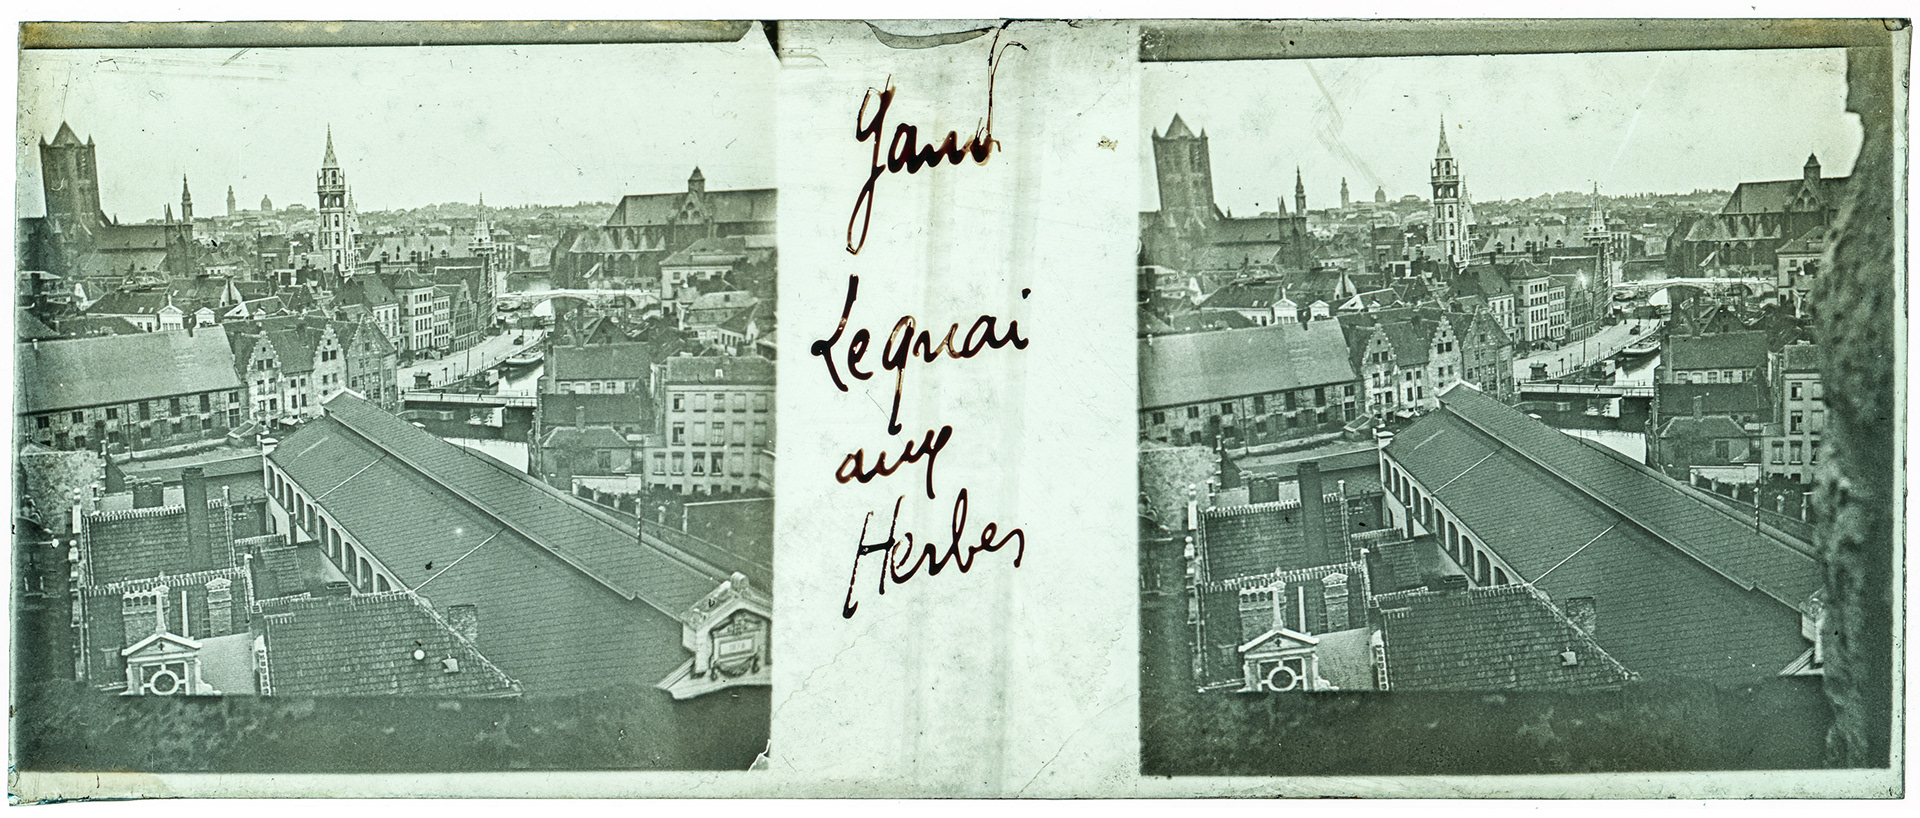 Gand
Le quai
aux
Herbes